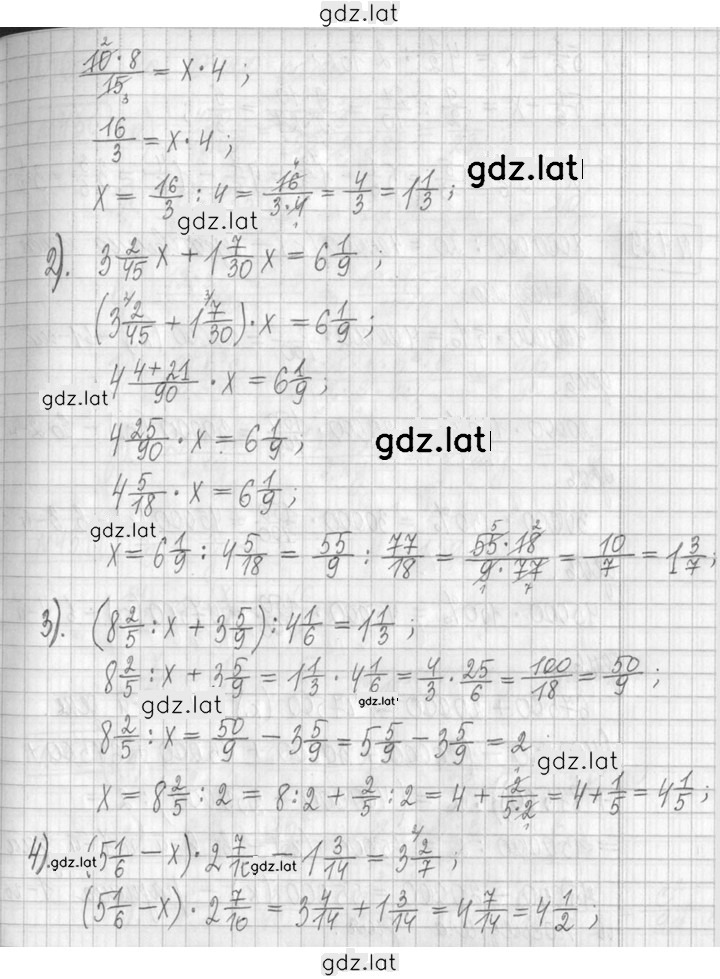 gdz.lat
10·8/15 = x·4 ;
16/3 = x·4 ;
gdz.lat
x = 16/3 : 4 = 16/3·4 = 4/3 = 1 1/3 ;
gdz.lat
2). 3 2/45 x + 1 7/30 x = 6 1/9 ;
(3 2/45 + 1 7/30)·x = 6 1/9 ;
4 4+21/90 · x = 6 1/9 ;
gdz.lat
4 25/90 · x = 6 1/9 ;
gdz.lat
4 5/18 · x = 6 1/9 ;
gdz.lat
x = 6 1/9 : 4 5/18 = 55/9 : 77/18 = 55·18/9·77 = 10/7 = 1 3/7 ;
3). (8 2/5 : x + 3 5/9) : 4 1/6 = 1 1/3 ;
8 2/5 : x + 3 5/9 = 1 1/3 · 4 1/6 = 4/3 · 25/6 = 100/18 = 50/9 ;
gdz.lat
gdz.lat
8 2/5 : x = 50/9 − 3 5/9 = 5 5/9 − 3 5/9 = 2
gdz.lat
x = 8 2/5 : 2 = 8:2 + 2/5 : 2 = 4 + 2/5·2 = 4 + 1/5 = 4 1/5 ;
4). (5 1/6 − x)·2 7/10 − 1 3/14 = 3 2/7 ;
gdz.lat
gdz.lat
(5 1/6 − x)·2 7/10 = 3 4/14 + 1 3/14 = 4 7/14 = 4 1/2 ;
gdz.lat